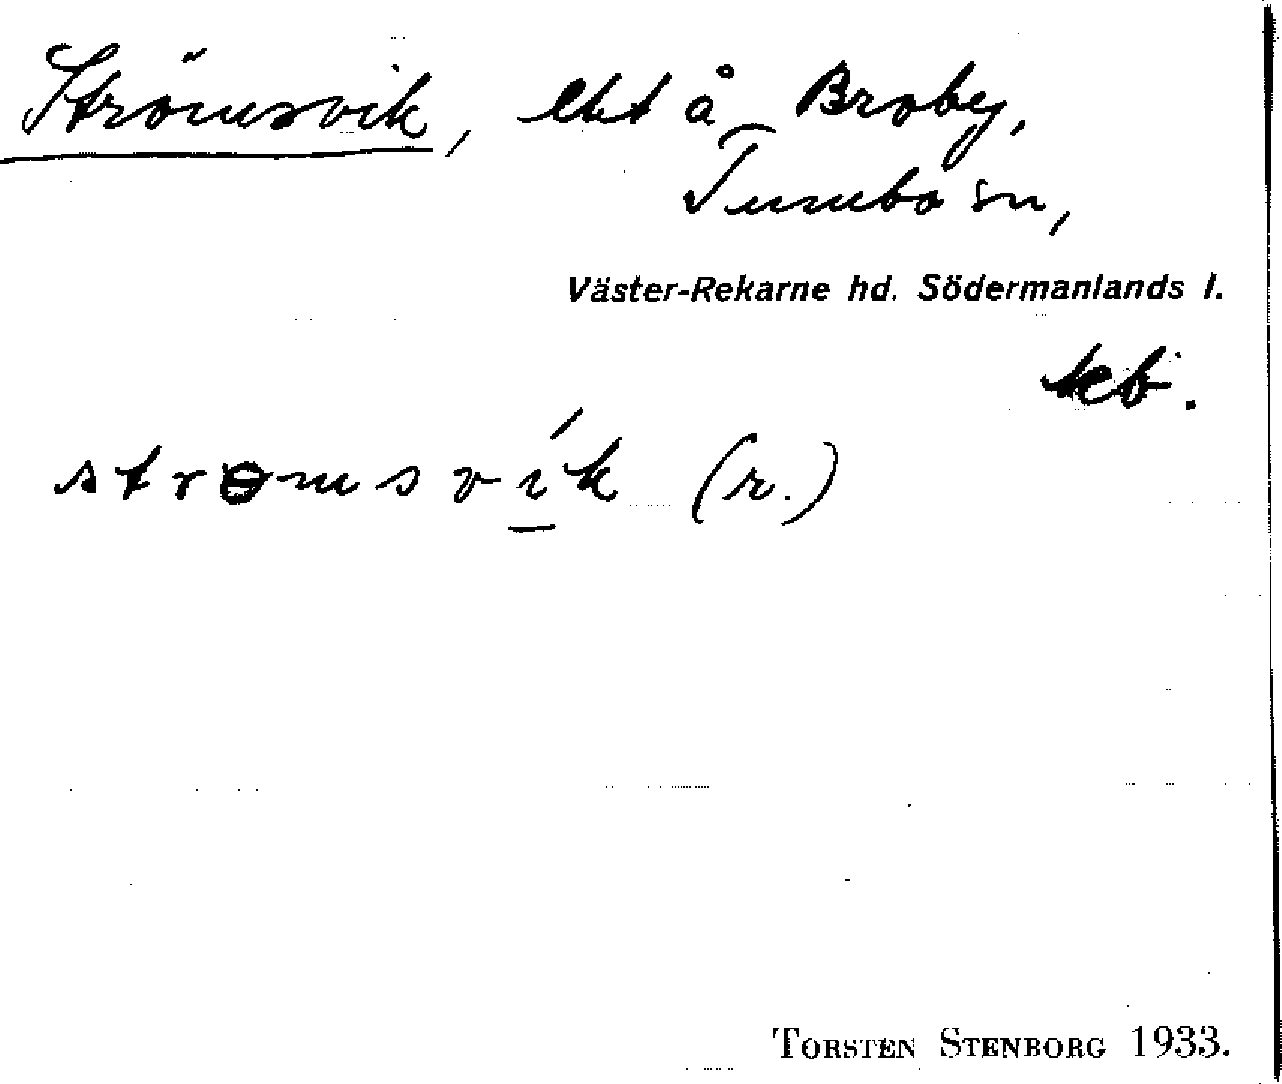 Strömsvik, lht å Broby,
Tumbo sn,
Väster-Rekarne hd. Södermanlands l.
kb.
strɵmsvík (r.)
TORSTEN STENBORG 1933.